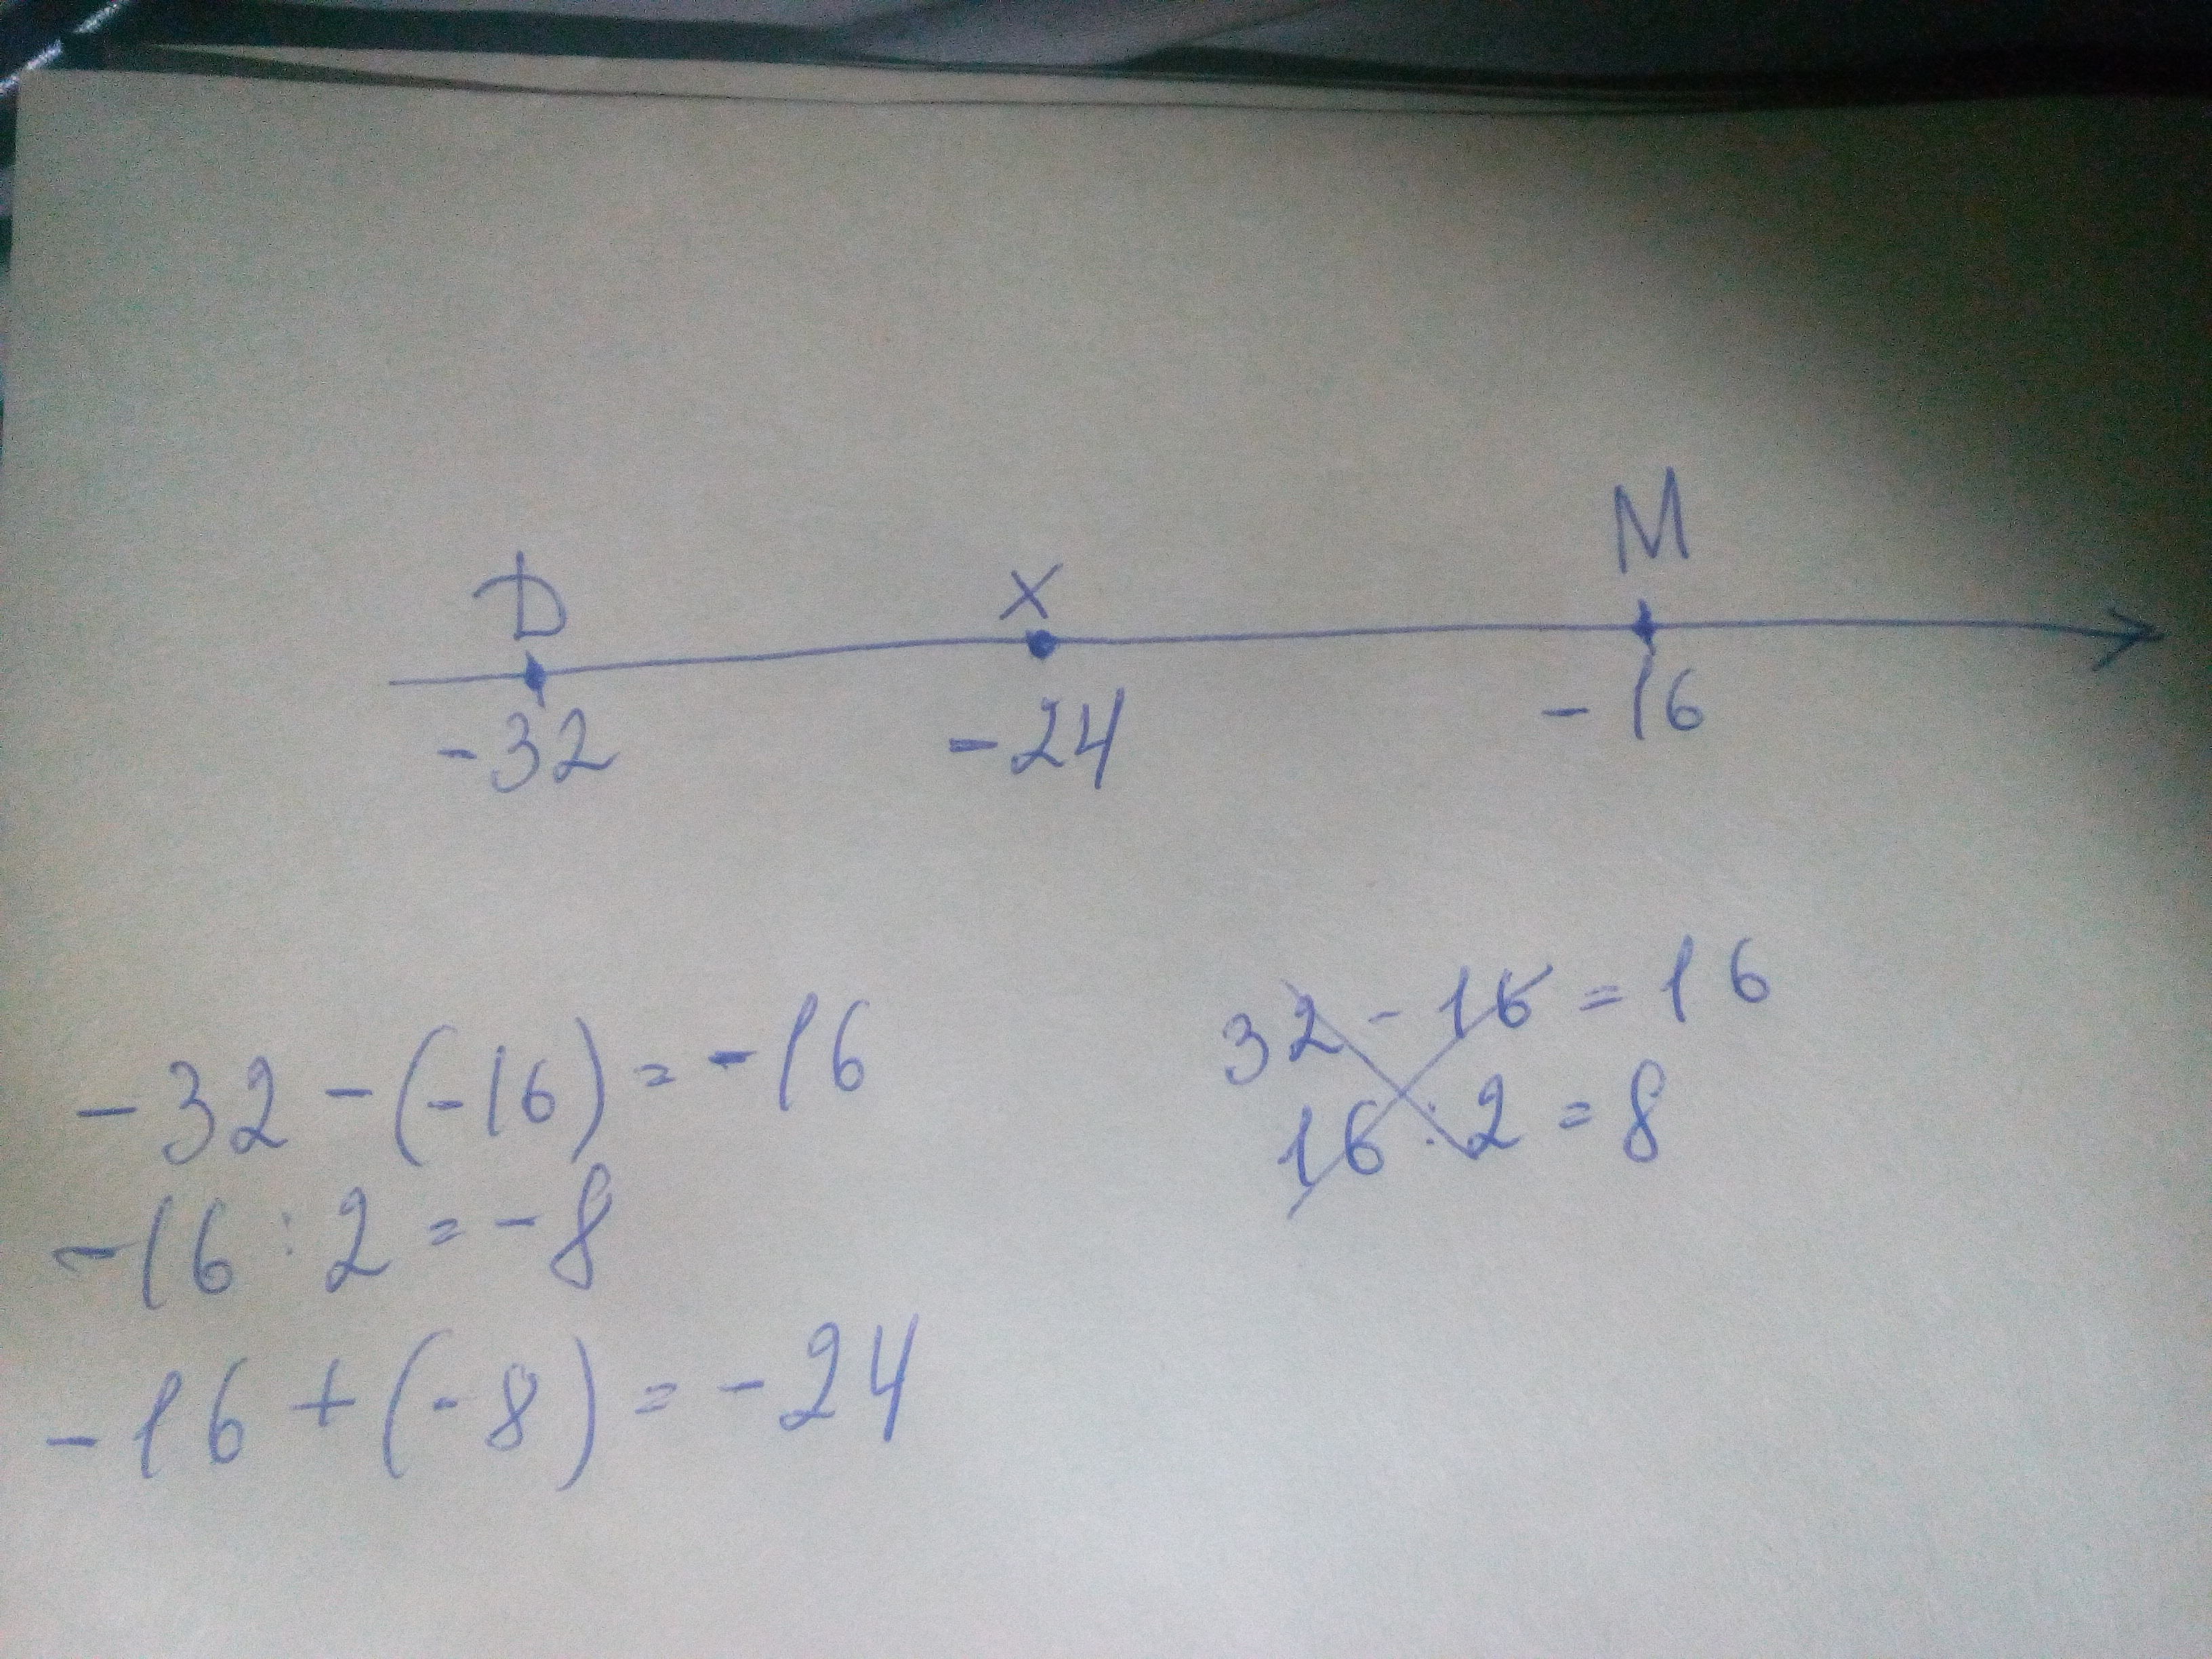 D X M
-32 -24 -16
-32-(-16)=-16
-16:2=-8
-16+(-8)=-24
32-16=16
16:2=8